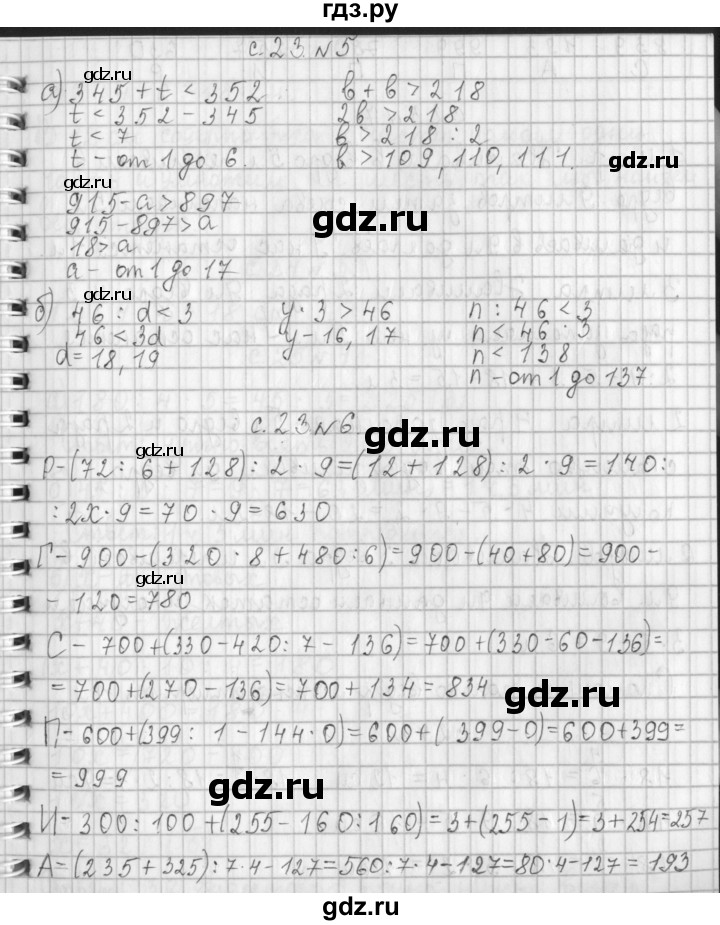 гдз.ру
с.23.№5.
а) 345+t<352 b+b>218
t<352-345 2b>218
t<7 b>218:2
t-от 1 до 6. b>109, 110, 111.
915-a>897
915-897>a
18>a
a-от 1 до 17
б) 46:d<3 y·3>46 n:46<3
46<3d y-16, 17 n<46·3
d=18, 19 n<138
n-от 1 до 137
с.23№6
Р-(72:6+128):2·9=(12+128):2·9=140:
:2х·9=70·9=630
Г-900-(320·8+480:6)=900-(40+80)=900-
-120=780
С-700+(330-420:7-136)=700+(330-60-136)=
=700+(270-136)=700+134=834
П-600+(399:1-144·0)=600+(399-0)=600+399=
=999
И-300:100+(255-160:160)=3+(255-1)=3+254=257
А=(235+325):7·4-127=560:7·4-127=80·4-127=193
gdz.ru
gdz.ru
gdz.ru
gdz.ru
gdz.ru
gdz.ru
gdz.ru
gdz.ru
gdz.ru
gdz.ru
gdz.ru
gdz.ru
гдз.ру